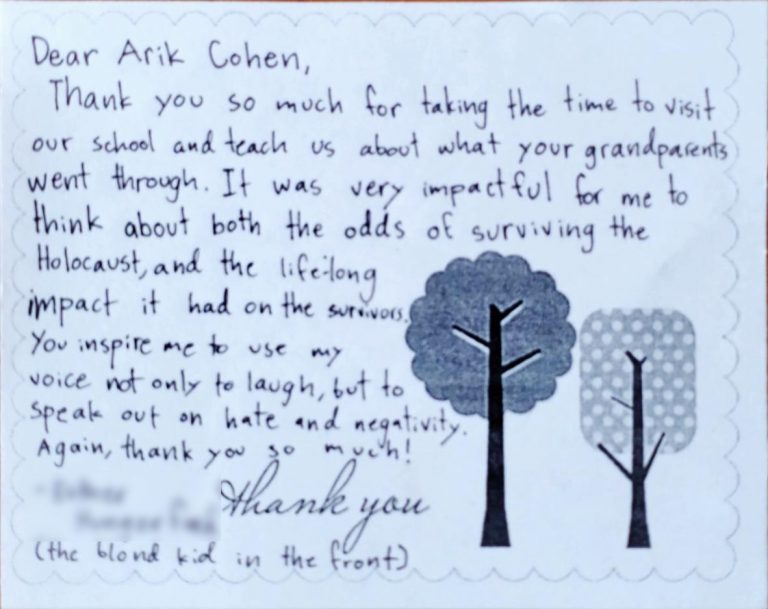 Dear Arik Cohen,
Thank you so much for taking the time to visit
our school and teach us about what your grandparents
went through. It was very impactful for me to
think about both the odds of surviving the
Holocaust, and the life-long
impact it had on the survivors.
You inspire me to use my
voice not only to laugh, but to
speak out on hate and negativity.
Again, thank you so much!
thank you
(the blond kid in the front)